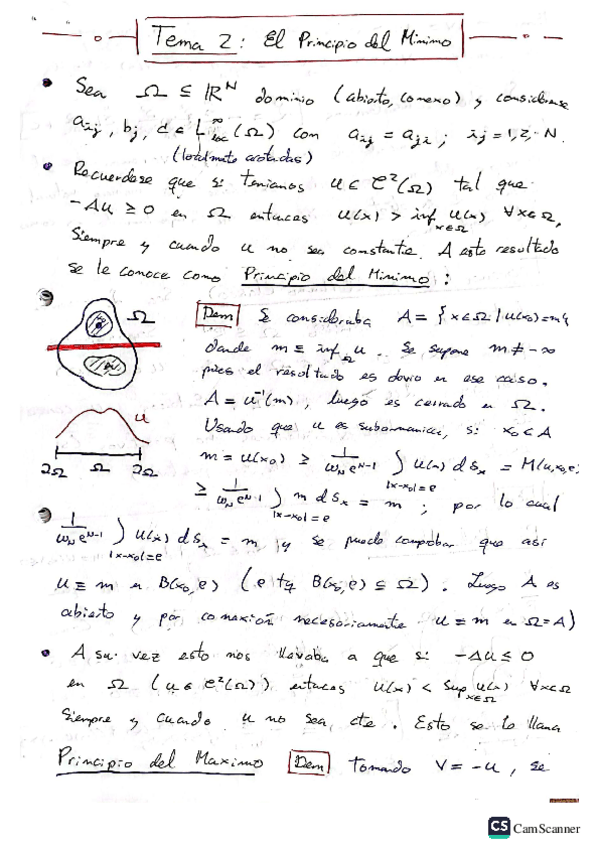 Tema 2: El Principio del Minimo
• Sea Ω ⊆ ℝᴺ dominio (abierto, conexo) y considerense
aᵢⱼ, bⱼ, c ∈ L^∞_loc(Ω) con aᵢⱼ = aⱼᵢ ; i,j = 1,2,..N.
(localmente acotadas)
• Recuerdese que si teniamos u ∈ C²(Ω) tal que
-Δu ≥ 0 en Ω entonces u(x) > inf_{x∈Ω} u(x) ∀x∈Ω,
Siempre y cuando u no sea constante. A este resultado
se le conoce como Principio del Minimo :
Ω
Dem Se consideraba A = { x∈Ω | u(x₀)=m}
donde m ≡ inf_Ω u. Se supone m ≠ -∞
pues el resultado es obvio en ese caso.
A = u⁻¹(m), luego es cerrado en Ω.
u
∂Ω Ω ∂Ω
Usando que u es subarmonica, si x₀ ∈ A
m = u(x₀) ≥ 1/(ω_N e^{N-1}) ∫_{|x-x₀|=e} u(x) dSₓ = M(u,x₀,e)
≥ 1/(ω_N e^{N-1}) ∫_{|x-x₀|=e} m dSₓ = m ; por lo cual
1/(ω_N e^{N-1}) ∫_{|x-x₀|=e} u(x) dSₓ = m y se puede comprobar que asi
u ≡ m en B(x₀,e) (e tq B(x₀,e) ⊆ Ω). Luego A es
abierto y por conexión necesariamente u ≡ m en Ω=A)
• A su vez esto nos llevaba a que si -Δu ≤ 0
en Ω (u ∈ C²(Ω)) entonces u(x) < sup_{x∈Ω} u(x) ∀x∈Ω
Siempre y cuando u no sea cte. Esto se lo llama
Principio del Maximo Dem Tomando V = -u, se
CS CamScanner